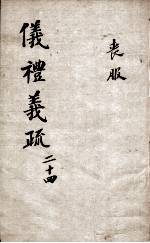 喪服
儀禮義疏二十四